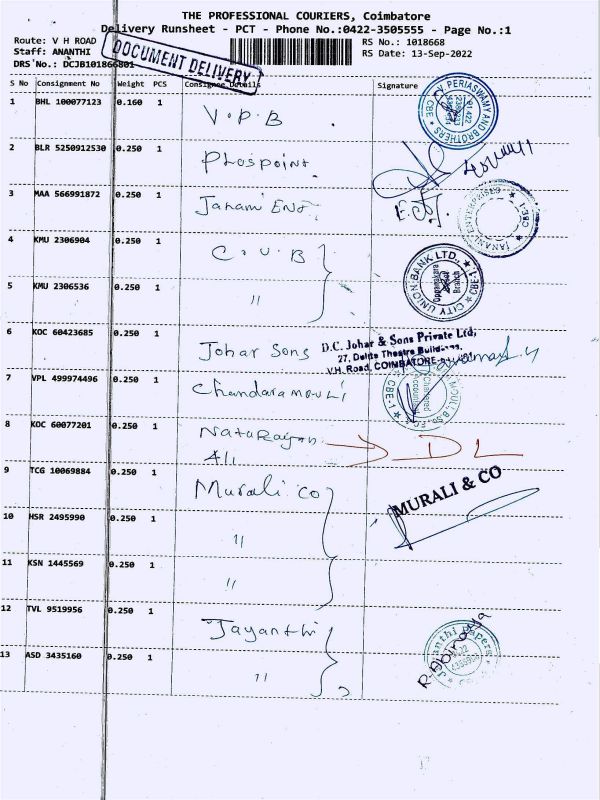 THE PROFESSIONAL COURIERS, Coimbatore
Delivery Runsheet - PCT - Phone No.:0422-3505555 - Page No.:1
Route: V H ROAD
RS No.: 1018668
Staff: ANANTHI
RS Date: 13-Sep-2022
DRS No.: DCJB101866801
DOCUMENT DELIVERY
S No Consignment No Weight PCS Consignee Details Signature
1 BHL 100077123 0.160 1 V.P.B
V. PERIASWAMY AND BROTHERS ★ CBE ★
2 BLR 5250912530 0.250 1 Phospoint.
3 MAA 566991872 0.250 1 Janani Ent.
JANANI ENTERPRISES ★ CBE-1 ★
4 KMU 2306904 0.250 1 C.U.B
★ CITY UNION BANK LTD., ★ CBE-1
Oppanakara Street Branch
5 KMU 2306536 0.250 1 "
6 KOC 60423685 0.250 1 Johar Sons
D.C. Johar & Sons Private Ltd,
27, Delite Theatre Buildings,
V.H. Road, COIMBATORE
7 VPL 499974496 0.250 1 Chandaramouli
Chartered Accountant
CBE-1 ★
8 KOC 60077201 0.250 1 Natarajan
All
DL
9 TCG 10069884 0.250 1 Murali co
MURALI & CO
10 HSR 2495990 0.250 1 "
11 KSN 1445569 0.250 1 "
12 TVL 9519956 0.250 1 Jayanthi
Jayanthi Papers
R. Abinaya
13 ASD 3435160 0.250 1 "